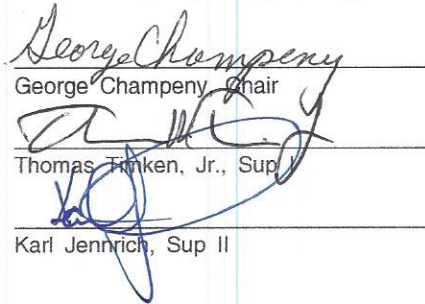 George Champeny
George Champeny, Chair
Thomas Timken, Jr., Sup I
Karl Jennrich, Sup II